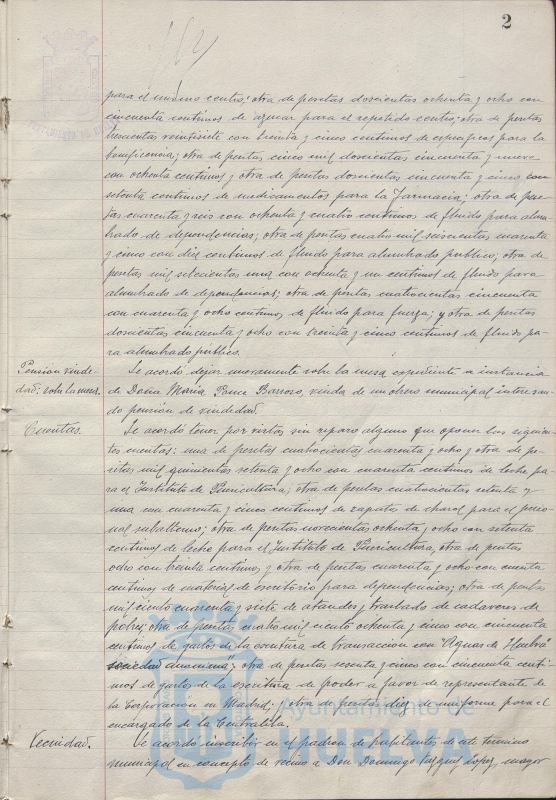 2
para el mismo centro; otra de pesetas doscientas ochenta y ocho con
cincuenta céntimos de azucar para el repetido centro; otra de pesetas
trescientas veintisiete con treinta y cinco céntimos de específicos para la
beneficencia; otra de pesetas cinco mil doscientas cincuenta y nueve
con ochenta céntimos y otra de pesetas doscientas cincuenta y cinco con
setenta céntimos de medicamentos para la Farmacia; otra de pese-
tas cuarenta y seis con ochenta y cuatro céntimos de fluido para alum-
brado de dependencias; otra de pesetas cuatro mil seiscientas cuarenta
y cinco con diez céntimos de fluido para alumbrado público; otra de
pesetas mil setecientas una con ochenta y un céntimos de fluido para
alumbrado de dependencias; otra de pesetas cuatrocientas cincuenta
con cuarenta y ocho céntimos de fluido para fuerza; y otra de pesetas
doscientas cincuenta y ocho con treinta y cinco céntimos de fluido pa-
ra alumbrado público.
Pensión viude-
dad: sobre la mesa.
Se acordó dejar nuevamente sobre la mesa expediente a instancia
de Doña María Ponce Barroso, viuda de un obrero municipal interesan-
do pensión de viudedad.
Cuentas.
Se acordó tener por vistas sin reparo alguno que oponer las siguien-
tes cuentas: una de pesetas cuatrocientas cuarenta y ocho y otra de pe-
setas mil quinientas setenta y ocho con cuarenta céntimos de leche pa-
ra el Instituto de Puericultura; otra de pesetas cuatrocientas setenta y
una con cuarenta y cinco céntimos de zapatos de charol para el perso-
nal subalterno; otra de pesetas novecientas ochenta y ocho con setenta
céntimos de leche para el Instituto de Puericultura; otra de pesetas
ocho con treinta céntimos y otra de pesetas cuarenta y ocho con
céntimos de material de escritorio para dependencias; otra de pesetas
mil ciento cuarenta y siete de ataudes y traslado de cadáveres de
pobres; otra de pesetas cuatro mil ciento ochenta y cinco con cincuenta
céntimos de gastos de la escritura de transacción con "Aguas de Huelva
sociedad anónima"; otra de pesetas sesenta y cinco con cincuenta cénti-
mos de gastos de la escritura de poder a favor de representante de
la Corporación en Madrid; y otra de pesetas diez de uniforme para el
encargado de la Centralita.
Vecindad.
Se acordó inscribir en el padrón de habitantes de este término
municipal en concepto de vecino a Don Domingo López, mayor
Ayuntamiento de
HUELVA